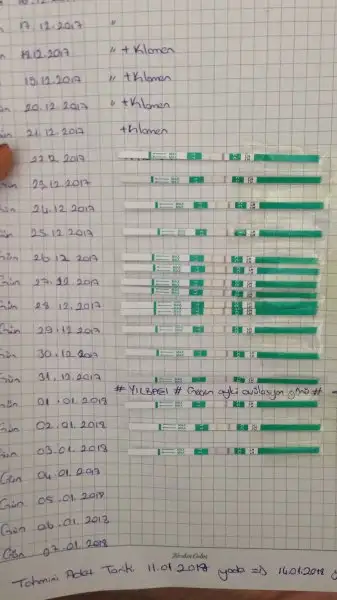 17.12.2017 "
18.12.2017 " + Klomen
19.12.2017 " + Klomen
20.12.2017 " + Klomen
21.12.2017 + Klomen
22.12.2017
Gün 23.12.2017
Gün 24.12.2017
Gün 25.12.2017
Gün 26.12.2017
Gün 27.12.2017
Gün 28.12.2017
Gün 29.12.2017
Gün 30.12.2017
Gün 31.12.2017
# YILBAŞI # Geçen ayki ovülasyon günü #
Gün 01.01.2018
Gün 02.01.2018
Gün 03.01.2018
Gün 04.01.2018
Gün 05.01.2018
Gün 06.01.2018
Gün 07.01.2018
Tahmini Adet Tarihi 11.01.2018 yada => 14.01.2018